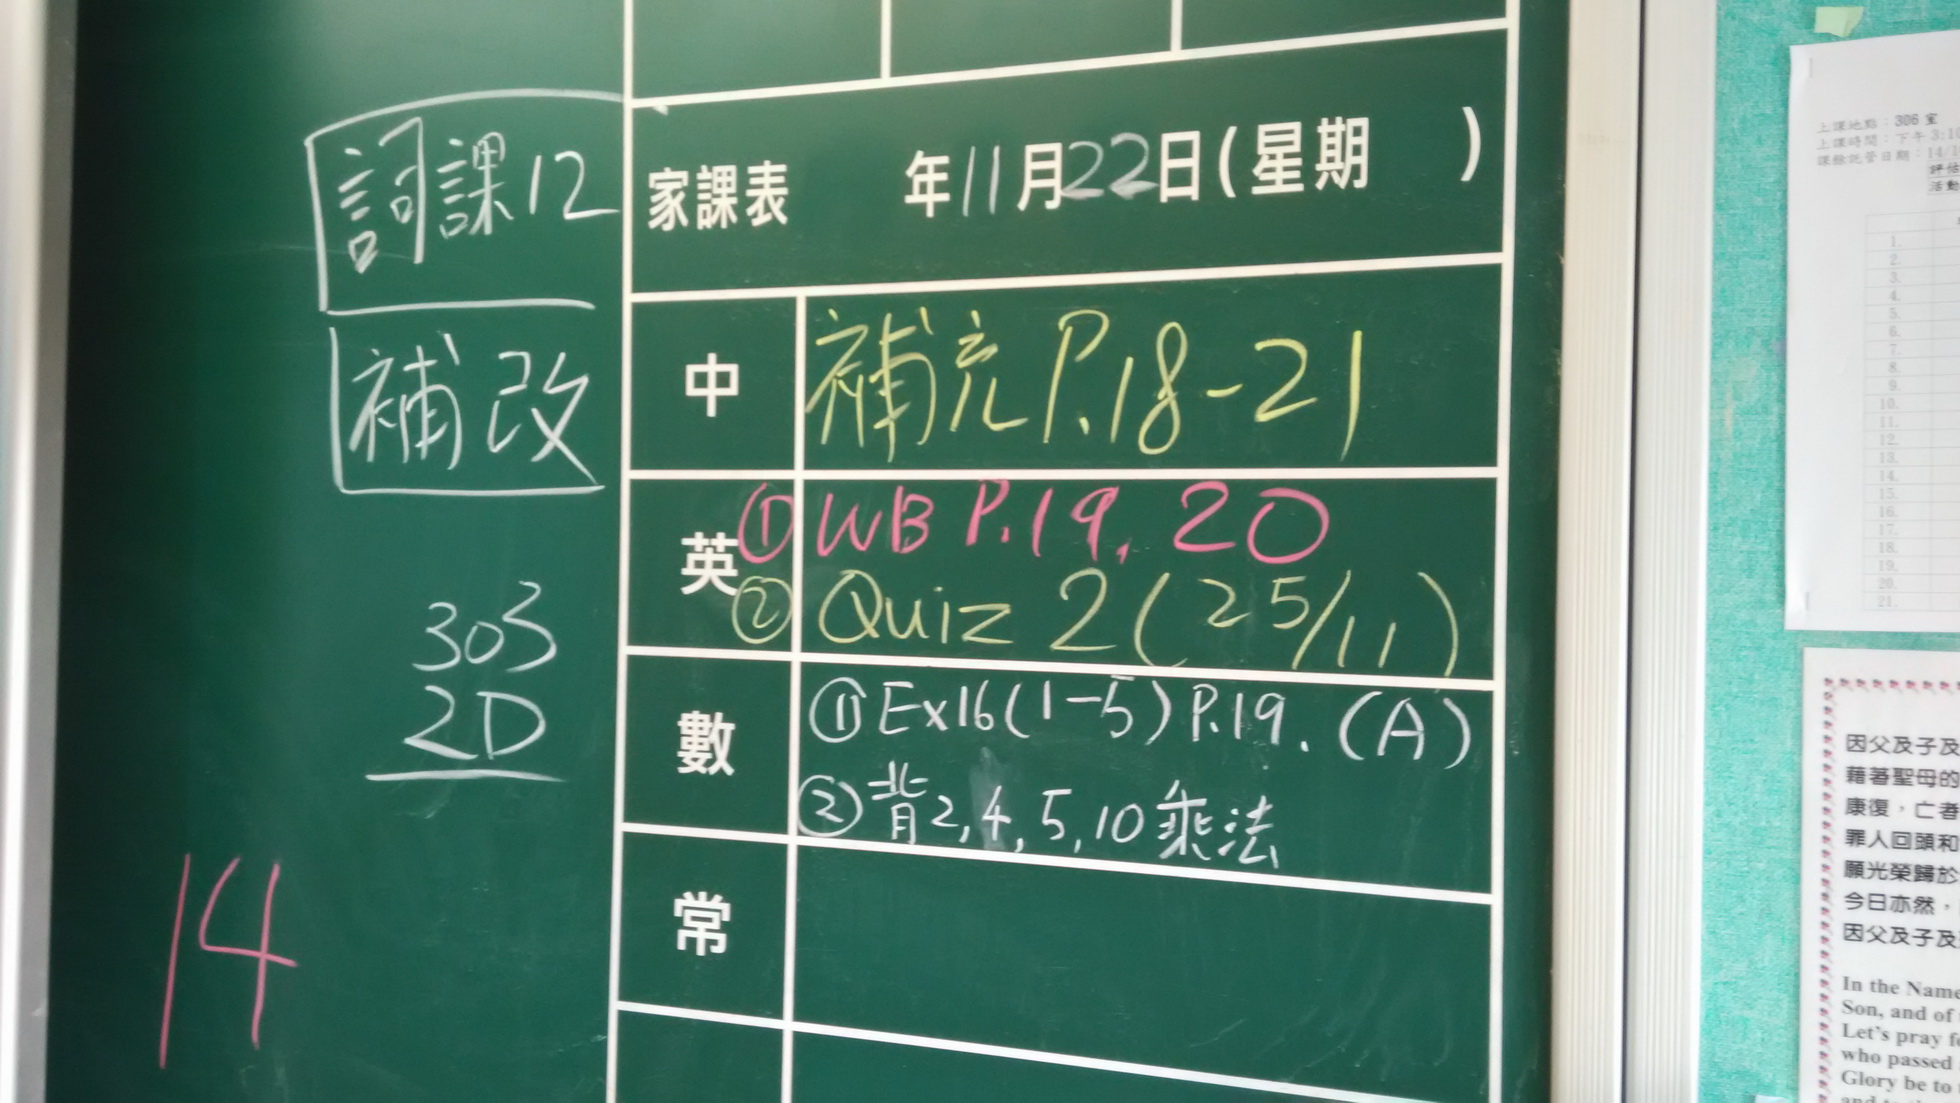 詞課12
補改
303
2D
14
家課表 年11月22日(星期 )
中 補充 P.18-21
英 ① WB P.19, 20
② Quiz 2 (25/11)
數 ① Ex16(1-5) P.19. (A)
② 背2,4,5,10乘法
常
上課地點：306 室
上課時間：下午 3:10
課餘託管日期：14/1
評估
活動
1.
2.
3.
4.
5.
6.
7.
8.
9.
10.
11.
12.
13.
14.
15.
16.
17.
18.
19.
20.
21.
因父及子及
藉著聖母的
康復，亡者
罪人回頭和
願光榮歸於
今日亦然，
因父及子及
In the Name
Son, and of
Let's pray f
who passed
Glory be to